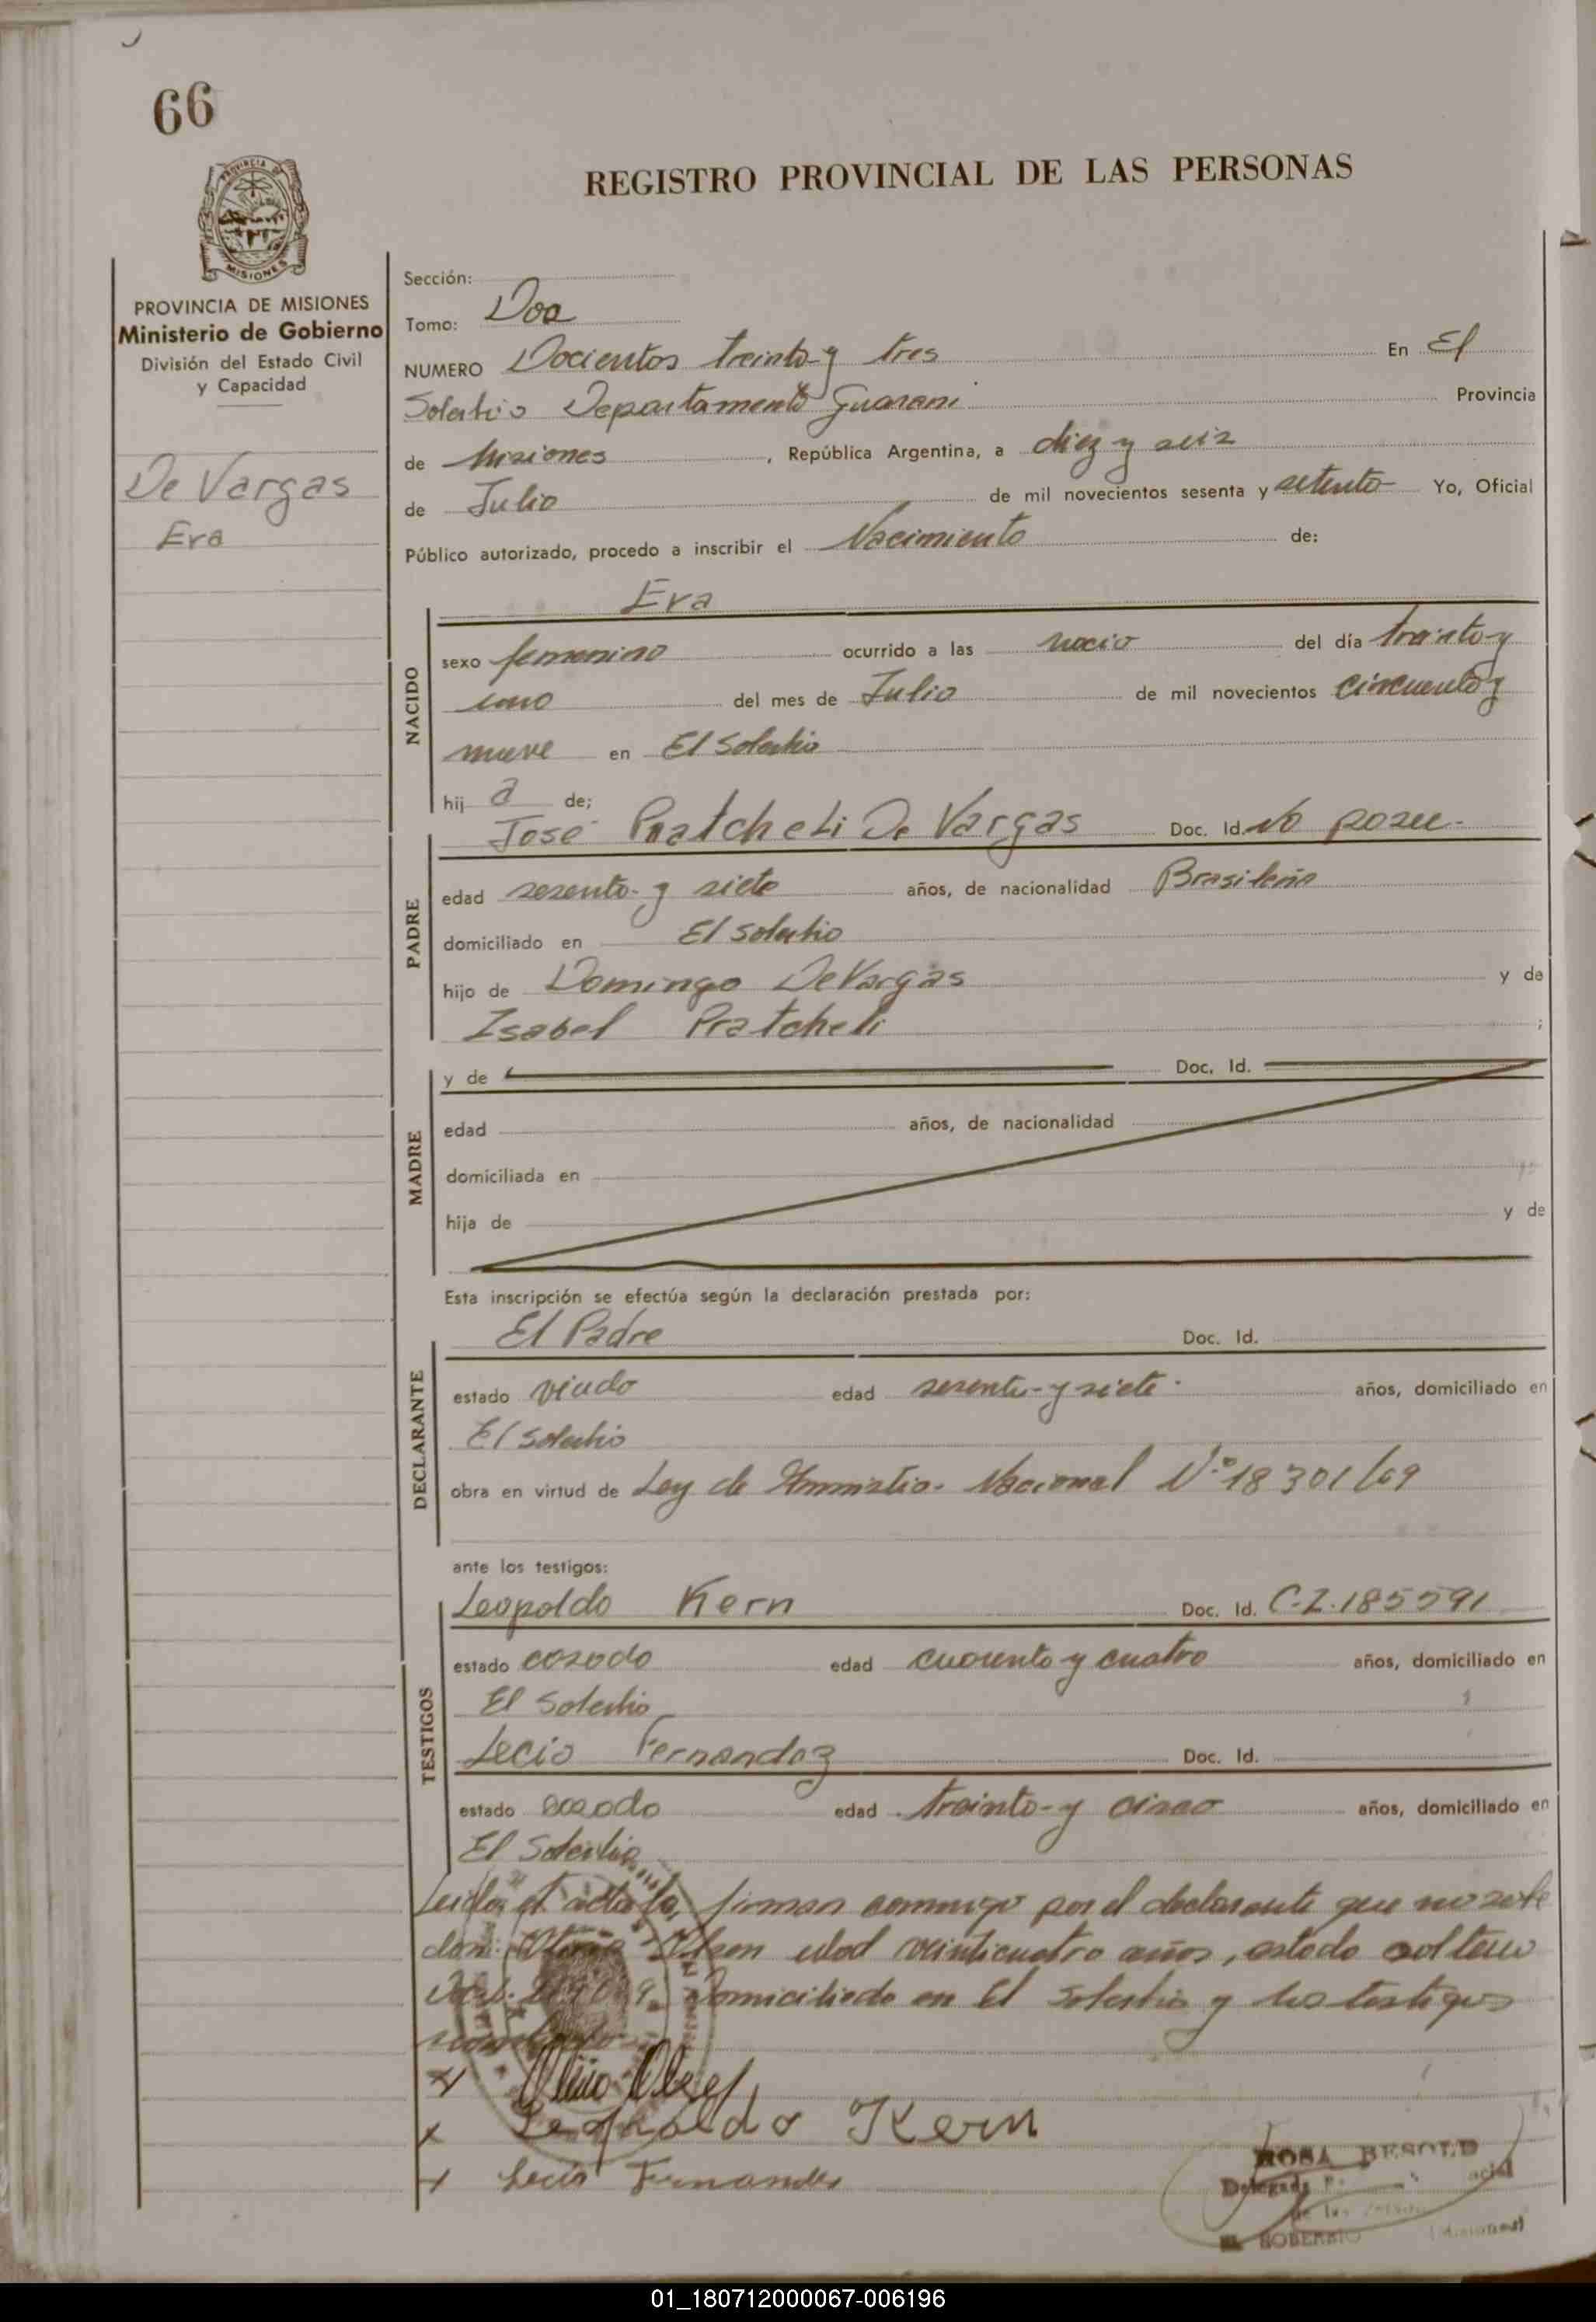 66
REGISTRO PROVINCIAL DE LAS PERSONAS
PROVINCIA DE MISIONES
MISIONES
PROVINCIA DE MISIONES
Ministerio de Gobierno
División del Estado Civil
y Capacidad
De Vargas
Eva
Sección:
Tomo: Dos
NUMERO Docientos treinta y tres En El
Soberbio Departamento Guarani Provincia
de Misiones , República Argentina, a diez y seis
de Julio de mil novecientos sesenta y setenta Yo, Oficial
Público autorizado, procedo a inscribir el Nacimiento de:
Eva
NACIDO
sexo femenino ocurrido a las nacio del día treinta y
uno del mes de Julio de mil novecientos cincuenta y
nueve en El Soberbio
hij a de;
José Pratcheli De Vargas Doc. Id. No posee.
PADRE
edad sesenta y siete años, de nacionalidad Brasileña
domiciliado en El Soberbio
hijo de Domingo De Vargas y de
Isabel Pratcheli ;
MADRE
y de Doc. Id.
edad años, de nacionalidad
domiciliada en
hija de y de
Esta inscripción se efectúa según la declaración prestada por:
El Padre Doc. Id.
DECLARANTE
estado viudo edad sesenta y siete. años, domiciliado en
El Soberbio
obra en virtud de Ley de Amnistia Nacional Nº 18301/69
ante los testigos:
Leopoldo Kern Doc. Id. C.I. 185591
TESTIGOS
estado casado edad cuarenta y cuatro años, domiciliado en
El Soberbio
Lecio Fernandez Doc. Id.
estado casado edad treinta y cinco años, domiciliado en
El Soberbio
Leida el acta la firman conmigo por el declarante que no sabe
edad veinticuatro años, estado soltero
Domiciliado en El Soberbio y los testigos
x
x Leopoldo Kern
x Lecio Fernandes
ROSA BESOLD
Delegada
EL SOBERBIO (Misiones)
01_180712000067-006196